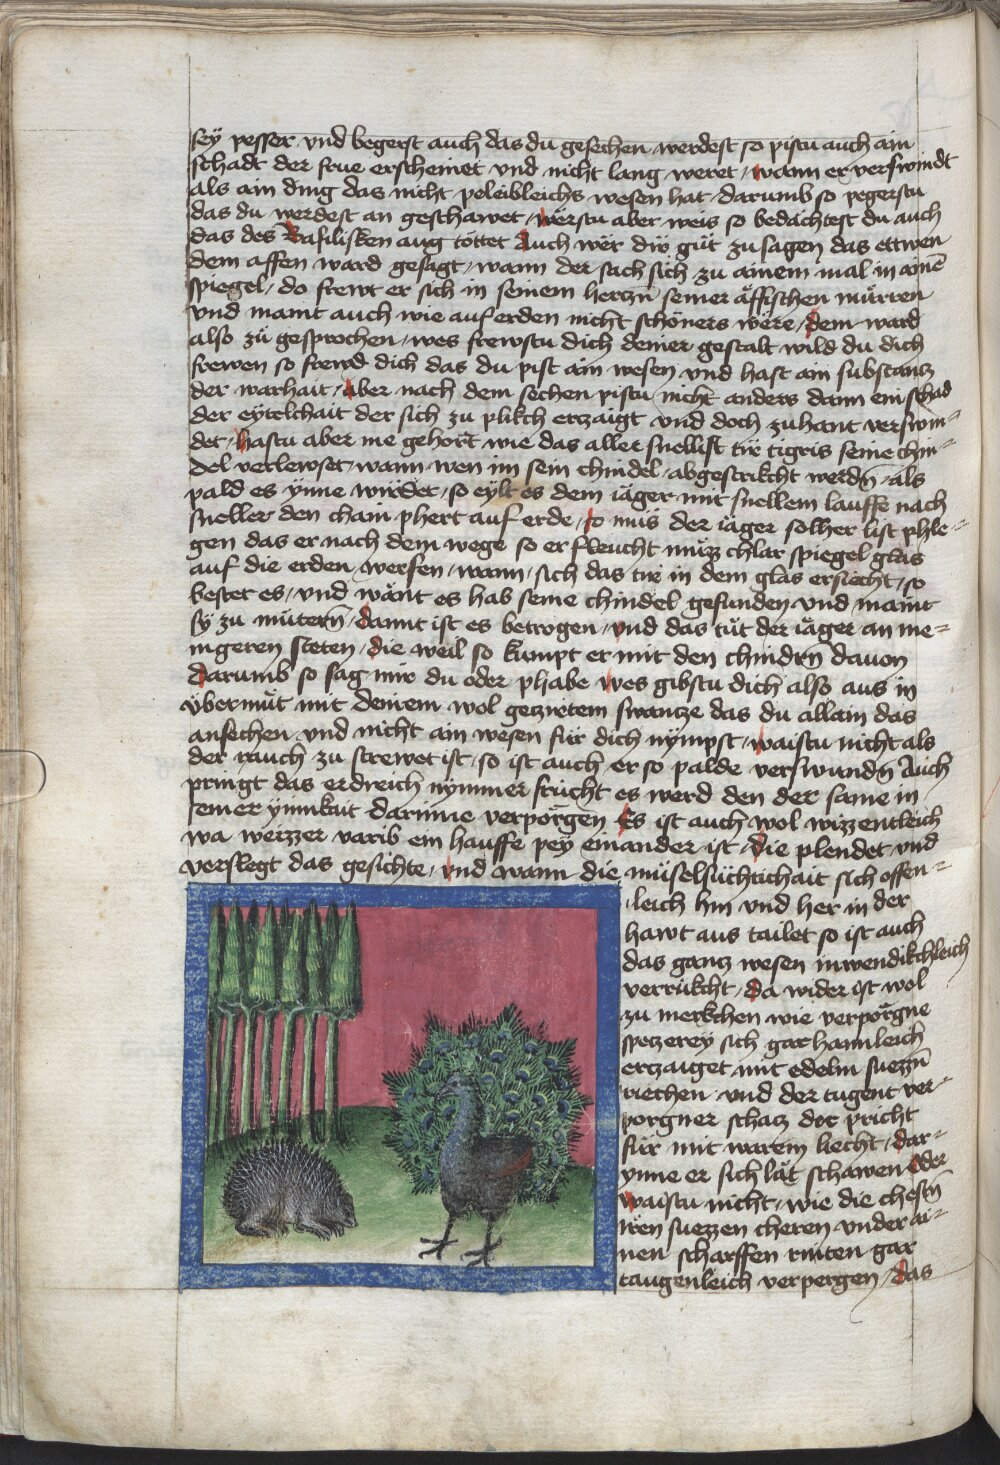 seÿ pesser vnd begerst auch das du gesechen werdest so pistu auch ain
schadt der frue erscheinet vnd nicht lang weret / wann er verswindt
als ain ding das nicht peleibleichs wesen hat / darumb so pegerstu
das du werdest an geschawet / wërstu aber weis so bedächtest du auch
das des Basilisken aug töttet Auch wër dir gůt zu sagen das ettwen
dem affen ward gesagt / wann der sach sich zu ainem mal in ainē
spiegel / do frewt er sich in seinem herczn̄ seiner äffischen närren
vnd maint auch wie auf erden nicht schöners wëre / dem ward
also zů gesprochen / wes frewstu dich deiner gestalt wild du dich
frewen so frewd dich das du pist ain wesen vnd hast ain substancz
der warhait / aber nach dem sechen pistu nicht anders dann ein schad
der eÿtelchait der sich zu plikch erczaigt vnd doch zuhant verswin-
det / hastu aber nie gehort wie das aller snellist tir tigris seine chin-
del verlewset / wann wen im sein chindel abgestrikcht werdn̄ / als
pald es ÿnne wirdet / so eÿlt es dem iäger mit snellem lauffe nach
sneller den chain phert auf erde / so mus der iäger solher list phle-
gen das er nach dem wege so er fleucht muzz chlar spiegel glas
auf die erden werfen / wann sich das tir in dem glas ersiecht / so
bestet es / vnd wänt es hab seine chindel gefunden vnd maint
sÿ zu mütern̄ / damit ist es betrogen / vnd das tůt der iäger an me-
nigeren steten / die weil so kumpt er mit den chindrn dauon
darumb so sag mir du oder phabe wes gibstu dich also aus in
vbermůt mit deinem wol geczirtem swancze das du allain das
ansechen vnd nicht ain wesen für dich nÿmpst / waistu nicht als
der rauch zu strewet ist / so ist auch er so palde verswundn̄ Auch
pringt das erdreich nÿmmer frucht es werd den der same in
seiner ÿnnikait darinne verporgen Es ist auch wol wizzentleich
wa weizzer varib ein hauffe peÿ einander ist / die plendet vnd
verslegt das gesichte / vnd wann die müselsüchtichait sich offen-
leich hin vnd her in der
hawt aus tailet so ist auch
das gancz wesen inwendikchleich
verrükcht / da wider ist wol
zu merkchen wie verporgne
speczereÿ sich gar hainleich
erczaiget mit edelm suezzn̄
riechen vnd der tugent ver-
porgner schacz der pricht
für mit warem liecht / dar-
ÿnne er sich lät schawen Oder
waistu nicht / wie die chestn̄
iren suezzen cheren vnder ai-
nen scharffen rinten gar
taugenleich verpergen / das